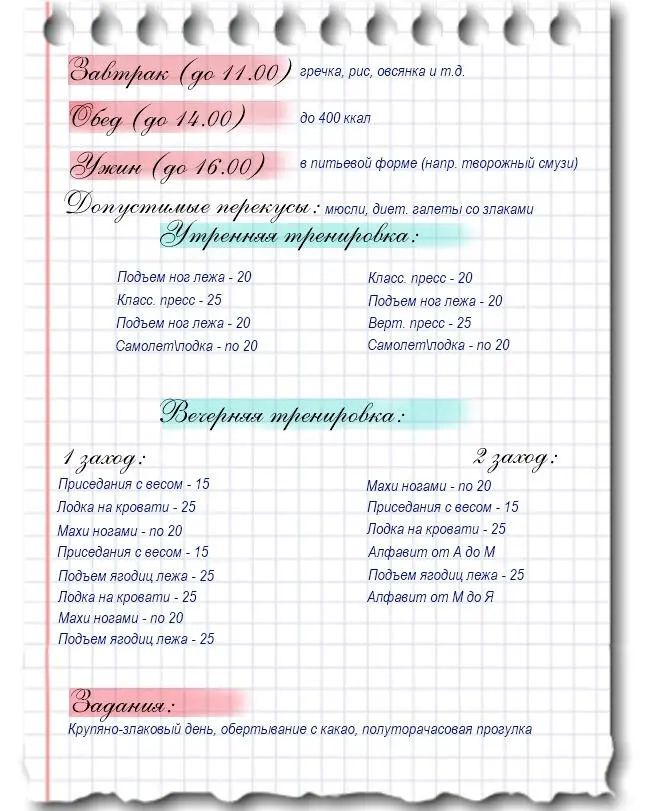 Завтрак (до 11.00) гречка, рис, овсянка и т.д.
Обед (до 14.00) до 400 ккал
Ужин (до 16.00) в питьевой форме (напр. творожный смузи)
Допустимые перекусы: мюсли, диет. галеты со злаками
Утренняя тренировка:
Подъем ног лежа - 20
Класс. пресс - 25
Подъем ног лежа - 20
Самолет\лодка - по 20
Класс. пресс - 20
Подъем ног лежа - 20
Верт. пресс - 25
Самолет\лодка - по 20
Вечерняя тренировка:
1 заход:
Приседания с весом - 15
Лодка на кровати - 25
Махи ногами - по 20
Приседания с весом - 15
Подъем ягодиц лежа - 25
Лодка на кровати - 25
Махи ногами - по 20
Подъем ягодиц лежа - 25
2 заход:
Махи ногами - по 20
Приседания с весом - 15
Лодка на кровати - 25
Алфавит от А до М
Подъем ягодиц лежа - 25
Алфавит от М до Я
Задания:
Крупяно-злаковый день, обертывание с какао, полуторачасовая прогулка